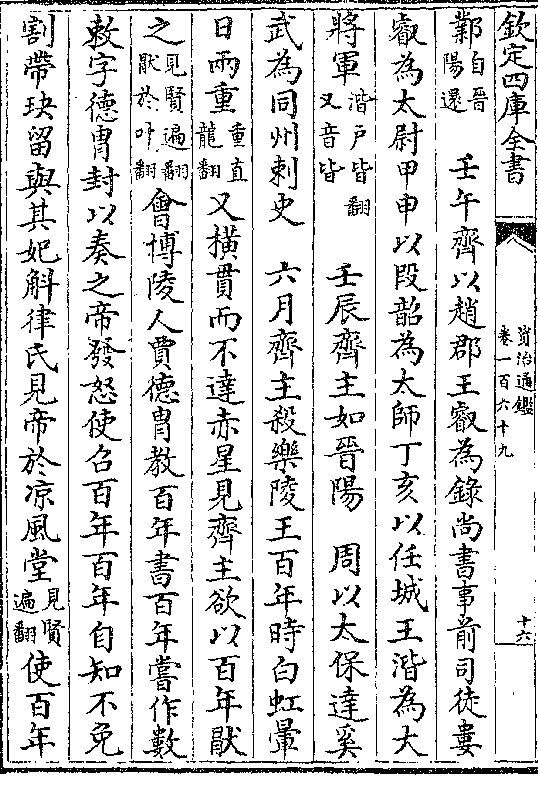 欽定四庫全書
資治通鑑
卷一百六十九
十六
鄴自晉
陽還
壬午齊以趙郡王叡為錄尚書事前司徒婁
叡為太尉甲申以段韶為太師丁亥以任城王湝為大
將軍湝户皆翻
又音皆
壬辰齊主如晉陽 周以太保達奚
武為同州刺史 六月齊主殺樂陵王百年時白虹暈
日兩重重直
龍翻
又橫貫而不達赤星見齊主欲以百年厭
之見賢遍翻
厭於叶翻
會博陵人賈德胄教百年書百年嘗作數
敕字德胄封以奏之帝發怒使召百年百年自知不免
割帶玦留與其妃斛律氏見帝於凉風堂見賢
遍翻
使百年